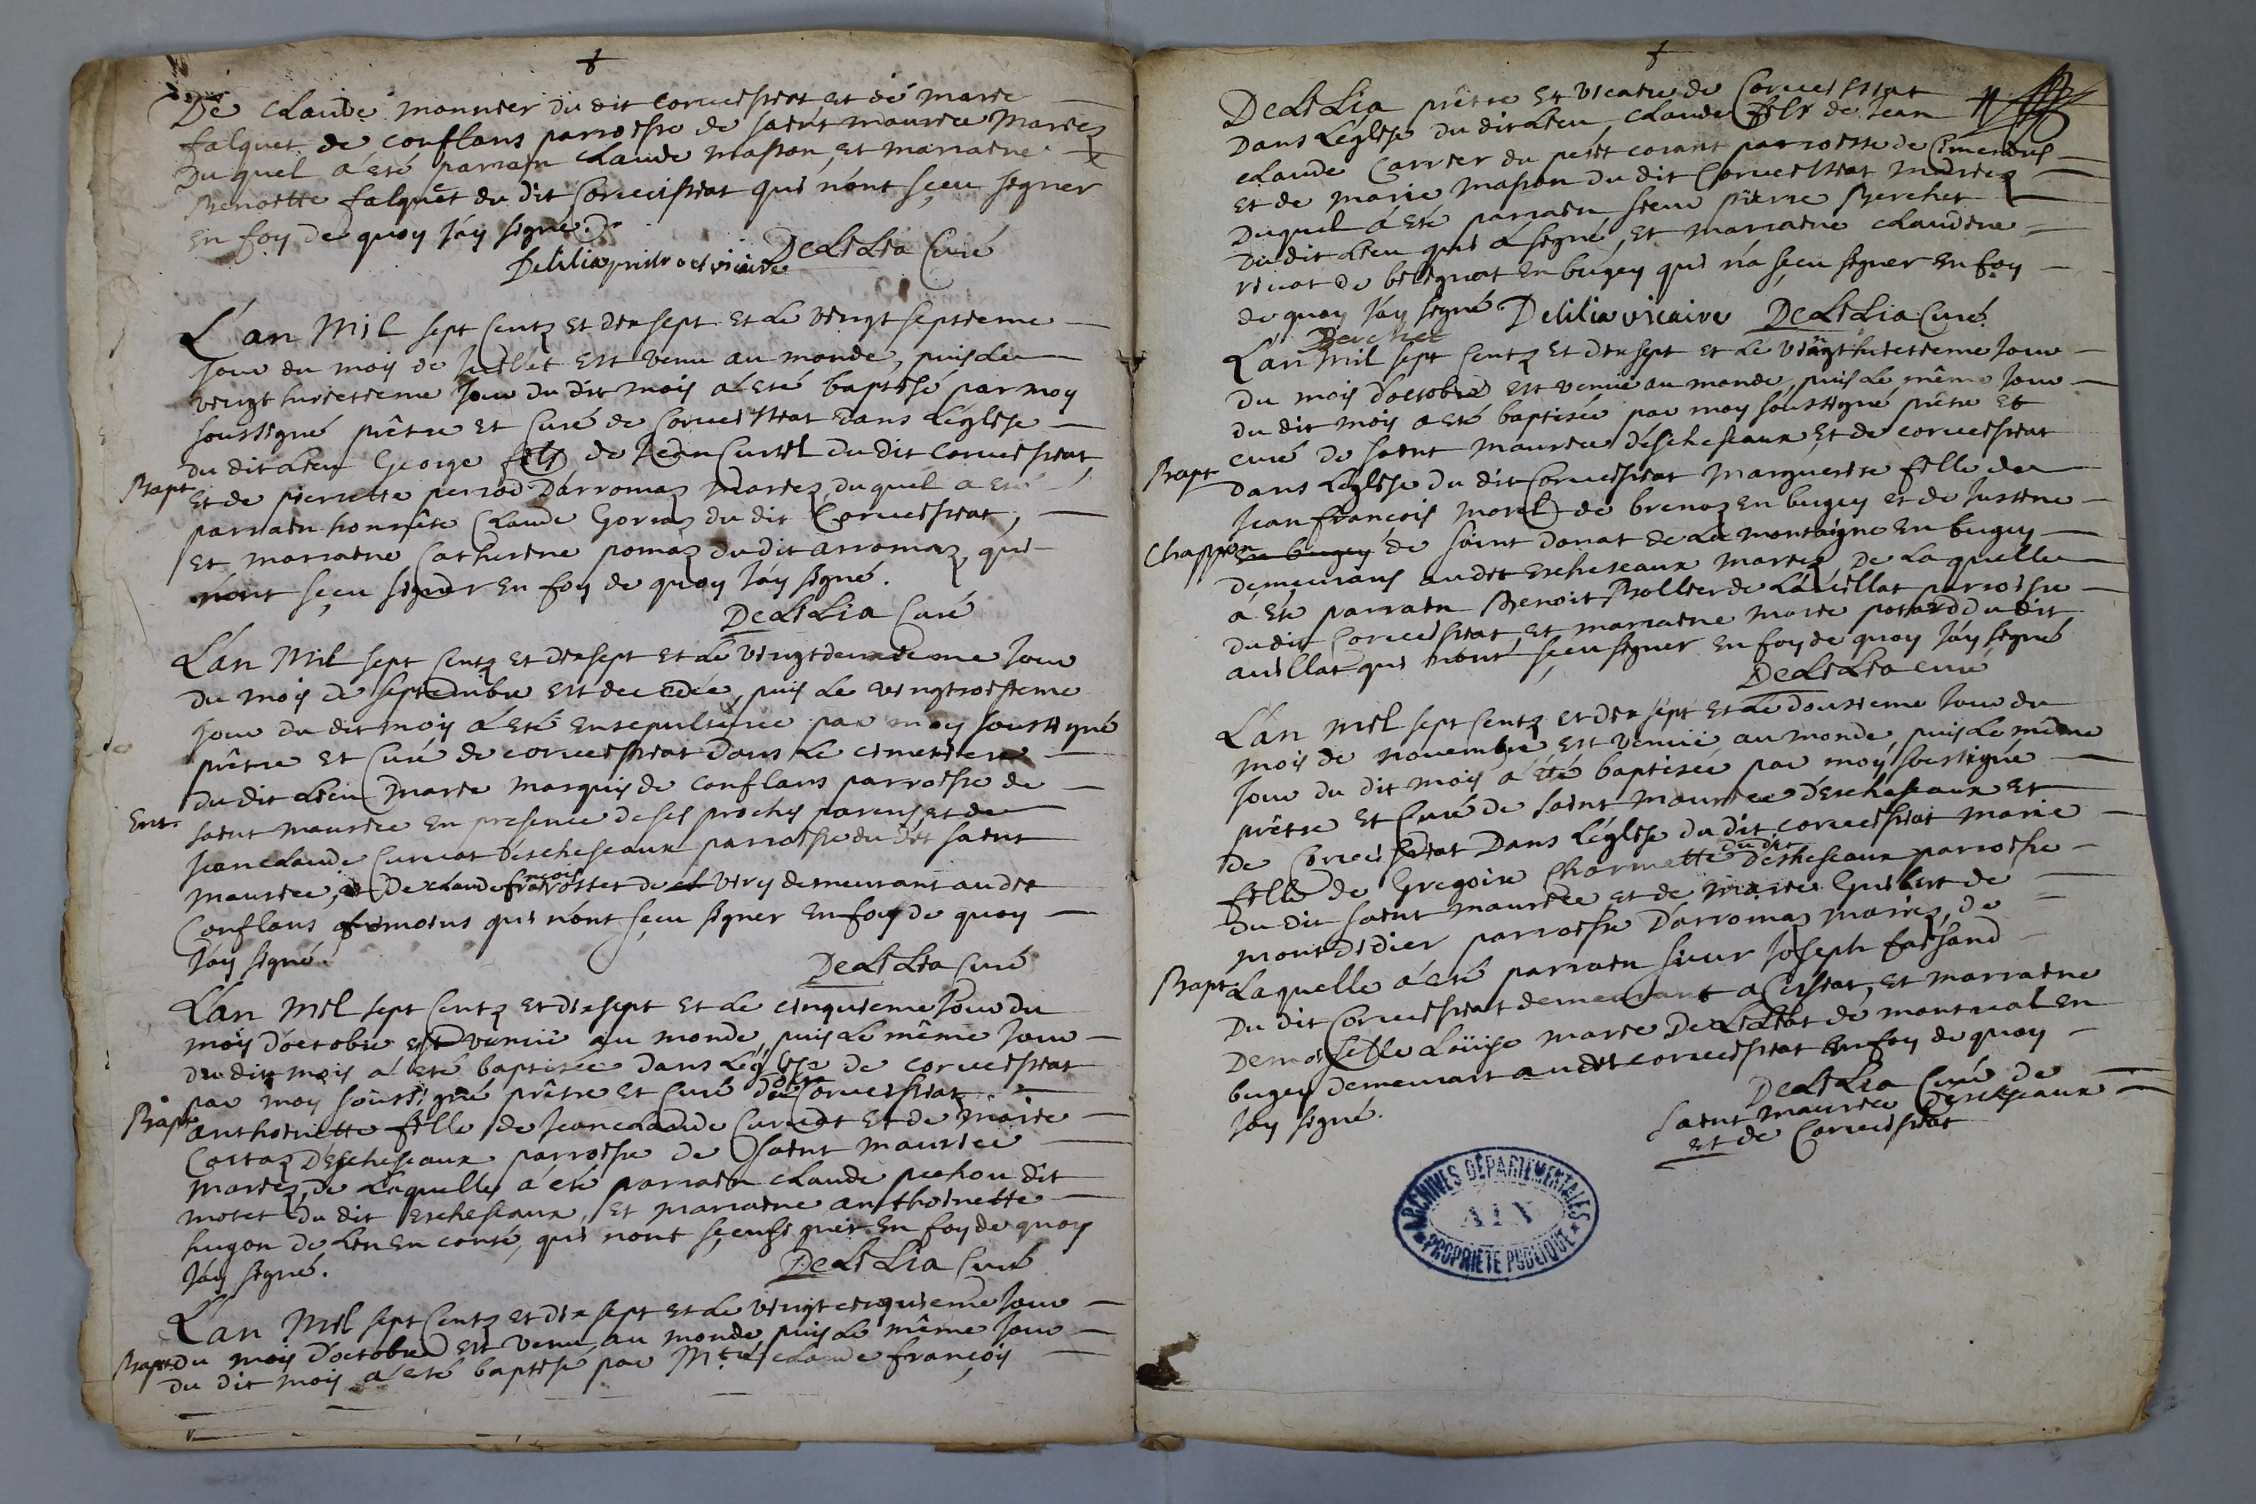 De claude monnier du dit corveissiat et de marie
falquet de conflans parroisse de saint maurice mariez
Duquel a été parrain claude masson, et marraine
Benoitte falquet du dit Corveissiat qui n'ont sçeu signer
en foy de quoy j'ay signé.
Delilia prêtre et vicaire DeLiLia Curé
L'an Mil sept Centz et dix sept et le vingt septieme
jour du mois de Juillet est venu au monde, puis le
vingt huictieme jour du dit mois a été baptisé par moy
soussigné prêtre et Curé de Corveissiat dans L'église
du dit Lieu George fils de Jean Curtil du dit Corveissiat
Bapt.
et de pierrette perrod D'arromaz mariez duquel a été
parrain honnête Claude Gorraz du dit Corveissiat,
et marraine Catherine pomaz du dit arromaz qui
n'ont sçeu signer en foy de quoy j'ay signé.
DeLiLia Curé
L'an Mil sept Centz et dix sept et le vingt deuxieme jour
du mois de septembre est decedée, puis le vingtroisieme
jour du dit mois a été ensepulturée par moy soussigné
prêtre et Curé de corveissiat dans le cimetiere
du dit Lieu Marie Marquis de conflans parroisse de
Ent.
saint maurice en presence de ses proches parens, et de
Jean claude Curvat d'escheseaux parroisse du dit saint
maurice, et De claude françois rosset de very demeurant au dit
Conflans temoins qui n'ont sçeu signer en foy de quoy
j'ay signé.
DeLiLia Curé
L'an Mil sept Centz et dix sept et le cinquieme jour du
mois d'octobre est venue au monde, puis le même jour
du dit mois a été baptisée dans L'église de corveissiat
par moy soussigné prêtre et Curé du dit Corveissiat
Bapt.
anthoinette fille de Jean claude Curvat et de Marie
Cortaz D'Escheseaux parroisse de saint maurice
mariez, de Laquelle a été parrain claude pichou dit
moret du dit Escheseaux, et marraine anthoinette
hugon de Lin en conté, qui n'ont sçeu signer en foy de quoy
j'ay signé.
DeLiLia Curé
L'an Mil sept Centz et dix sept et le vingt cinquieme jour
Bapt.
du mois d'octobre est venu au monde, puis le même jour
du dit mois a été baptisé par Mre claude françois
DeLiLia prêtre et vicaire de Corveissiat
Dans L'église du dit Lieu claude fils de Jean
claude Carrier du petit corant parroisse de Cimendres
et de marie masson du dit Corveissiat mariez
Duquel a été parrain sieur pierre Berchet
du dit Lieu qui a signé, et marraine claudine
revat de belignat en bugey qui n'a sçeu signer en foy
de quoy j'ay signé Delilia vicaire DeLiLia Curé
Berchet
L'an Mil sept Centz et dix sept et le vingt huictieme jour
du mois d'octobre est venue au monde, puis le même jour
du dit mois a été baptisée par moy soussigné prêtre et
curé de saint maurice d'escheseaux, et de corveissiat
Bapt.
dans L'église du dit Corveissiat Marguerite fille de
Jean françois morel de brenaz en bugey et de Justine
Chappon
en bugey de saint donat de la montaigne en bugey
demeurans au dit Escheseaux mariez, De Laquelle
a été parrain Benoit Bollier de L'avillat parroisse
du dit Corveissiat, et marraine marie potard du dit
avillat qui n'ont sçeu signer en foy de quoy j'ay signé
DeLiLia curé
L'an Mil sept Centz et dix sept et le dousieme jour du
mois de novembre est venue au monde, puis le même
jour du dit mois a été baptisée par moy soussigné
prêtre et Curé de saint maurice d'Escheseaux et
de Corveissiat Dans L'église du dit corveissiat marie
fille de Gregoire Charmette du dit d'escheseaux parroisse
du dit saint maurice et de marie Guibert de
mont didier parroisse D'arromaz mariez, de
Bapt.
Laquelle a été parrain sieur Joseph faisand
Du dit Corveissiat demeurant a Cessiat, et marraine
Demoiselle Loüise marie DeLiLiat de montval en
bugey demeurant au dit corveissiat en foy de quoy
j'ay signé.
DeLiLia Curé de
saint maurice d'escheseaux
et de Corveissiat
ARCHIVES DÉPARTEMENTALES
AIN
PROPRIÉTÉ PUBLIQUE